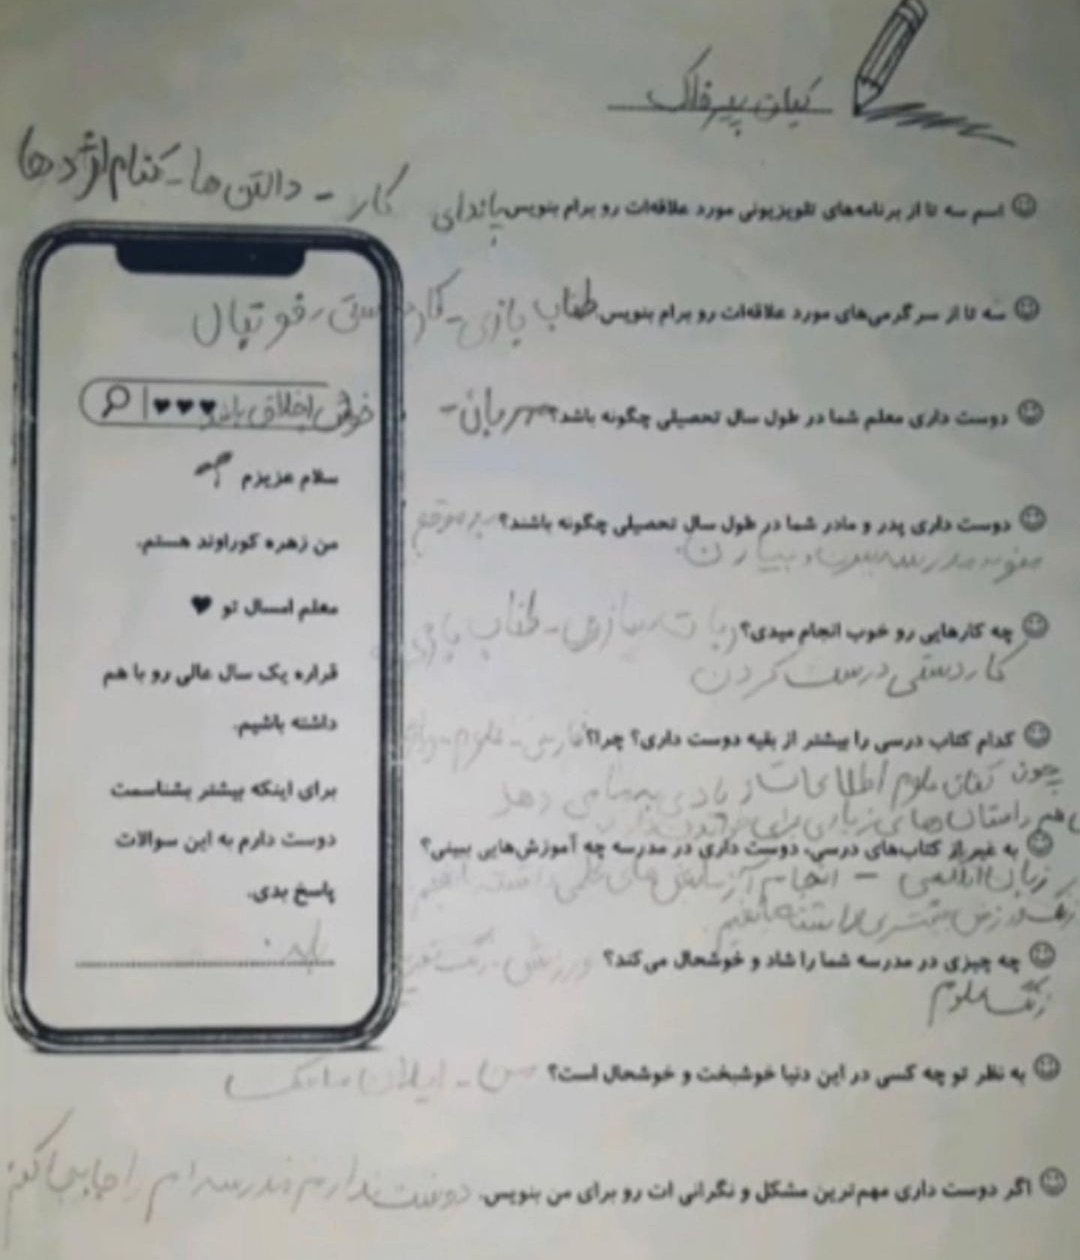 کیان پیرفلک
☺ اسم سه تا از برنامه‌های تلویزیونی مورد علاقه‌ات رو برام بنویس پاندای کار - دالتن ها - کدام اژدها
☺ سه تا از سرگرمی‌های مورد علاقه‌ات رو برام بنویس طناب بازی - کاردستی - فوتبال
☺ دوست داری معلم شما در طول سال تحصیلی چگونه باشد؟ مهربان -
خوش اخلاق باشد ♥♥♥
☺ دوست داری پدر و مادر شما در طول سال تحصیلی چگونه باشند؟ به موقع
مدرسه
☺ چه کارهایی رو خوب انجام میدی؟ ربات سازی - طناب بازی
کاردستی درست کردن
☺ کدام کتاب درسی را بیشتر از بقیه دوست داری؟ چرا؟ فارسی - علوم
چون کتاب علوم اطلاعات زیادی به ما می دهد
داستان های زیادی برای خواندن دارد
☺ به غیر از کتاب‌های درسی، دوست داری در مدرسه چه آموزش‌هایی ببینی؟
زبان انگلیسی - انجام آزمایش های علمی داشته باشیم
زنگ ورزش بیشتری داشته باشیم
☺ چه چیزی در مدرسه شما را شاد و خوشحال می‌کند؟ ورزش - زنگ تفریح
زنگ علوم
☺ به نظر تو چه کسی در این دنیا خوشبخت و خوشحال است؟ من - ایلان ماسک
☺ اگر دوست داری مهم‌ترین مشکل و نگرانی ات رو برای من بنویس. دوست ندارم مدرسه ام را جابجا کنم
سلام عزیزم
من زهره کوراوند هستم.
معلم امسال تو ♥
قراره یک سال عالی رو با هم
داشته باشیم.
برای اینکه بیشتر بشناسمت
دوست دارم به این سوالات
پاسخ بدی.